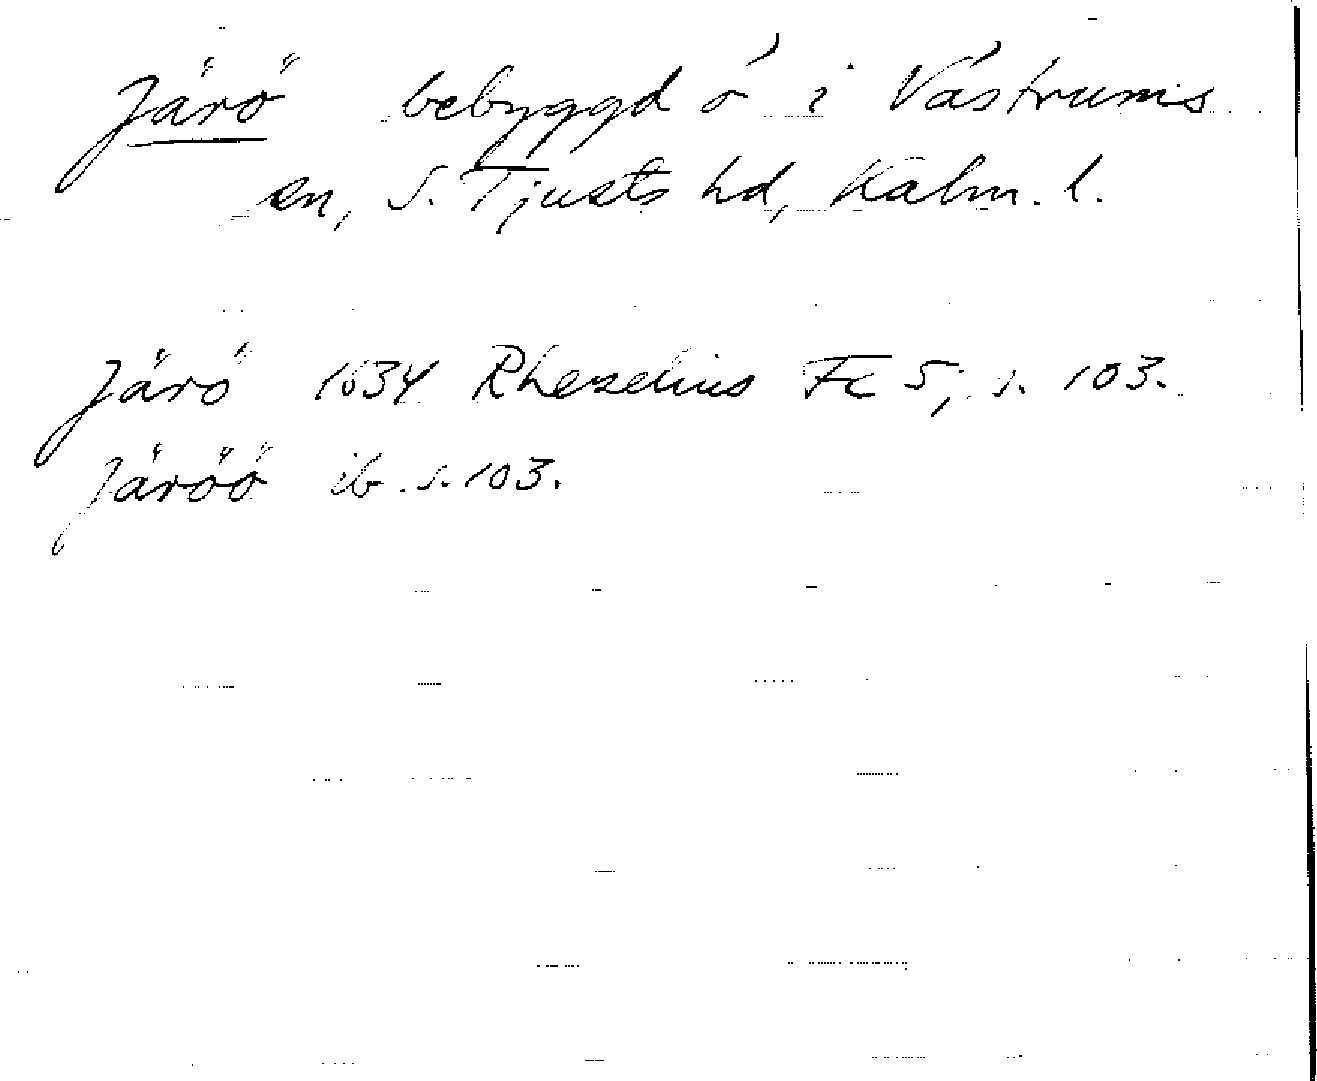 Järö bebyggd ö i Västrums
sn, S. Tjusts hd, Kalm. l.
Järö 1634 Rhezelius Fc 5, s. 103.
Järöö ib. s. 103.